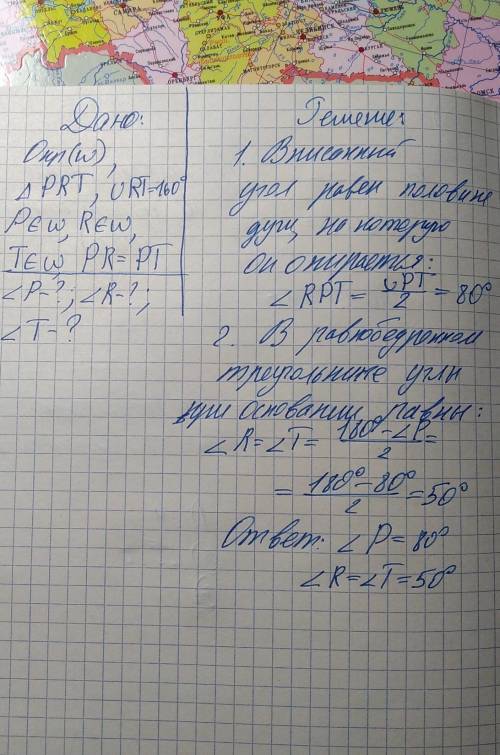 САМАРА
ОРЕНБУРГ
МАГНИТОГОРСК
Дано:
Окр(ω),
△PRT, ∪RT=160°
P∈ω, R∈ω,
T∈ω, PR=PT
∠P-?; ∠R-?;
∠T-?
Решение:
1. Вписанный
угол равен половине
дуги, на которую
он опирается:
∠RPT = ∪PT/2 = 80°
2. В равнобедренном
треугольнике углы
при основании равны:
∠R=∠T= 180°-∠P/2 =
= 180°-80°/2 =50°
Ответ: ∠P=80°
∠R=∠T=50°